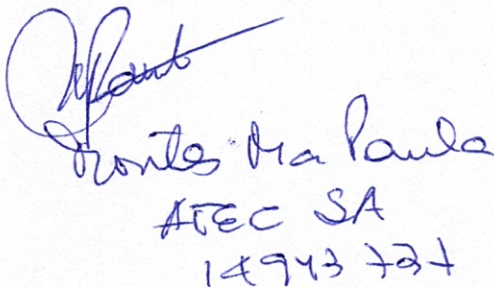 Montes Ma Paula
ATEC SA
14943 737